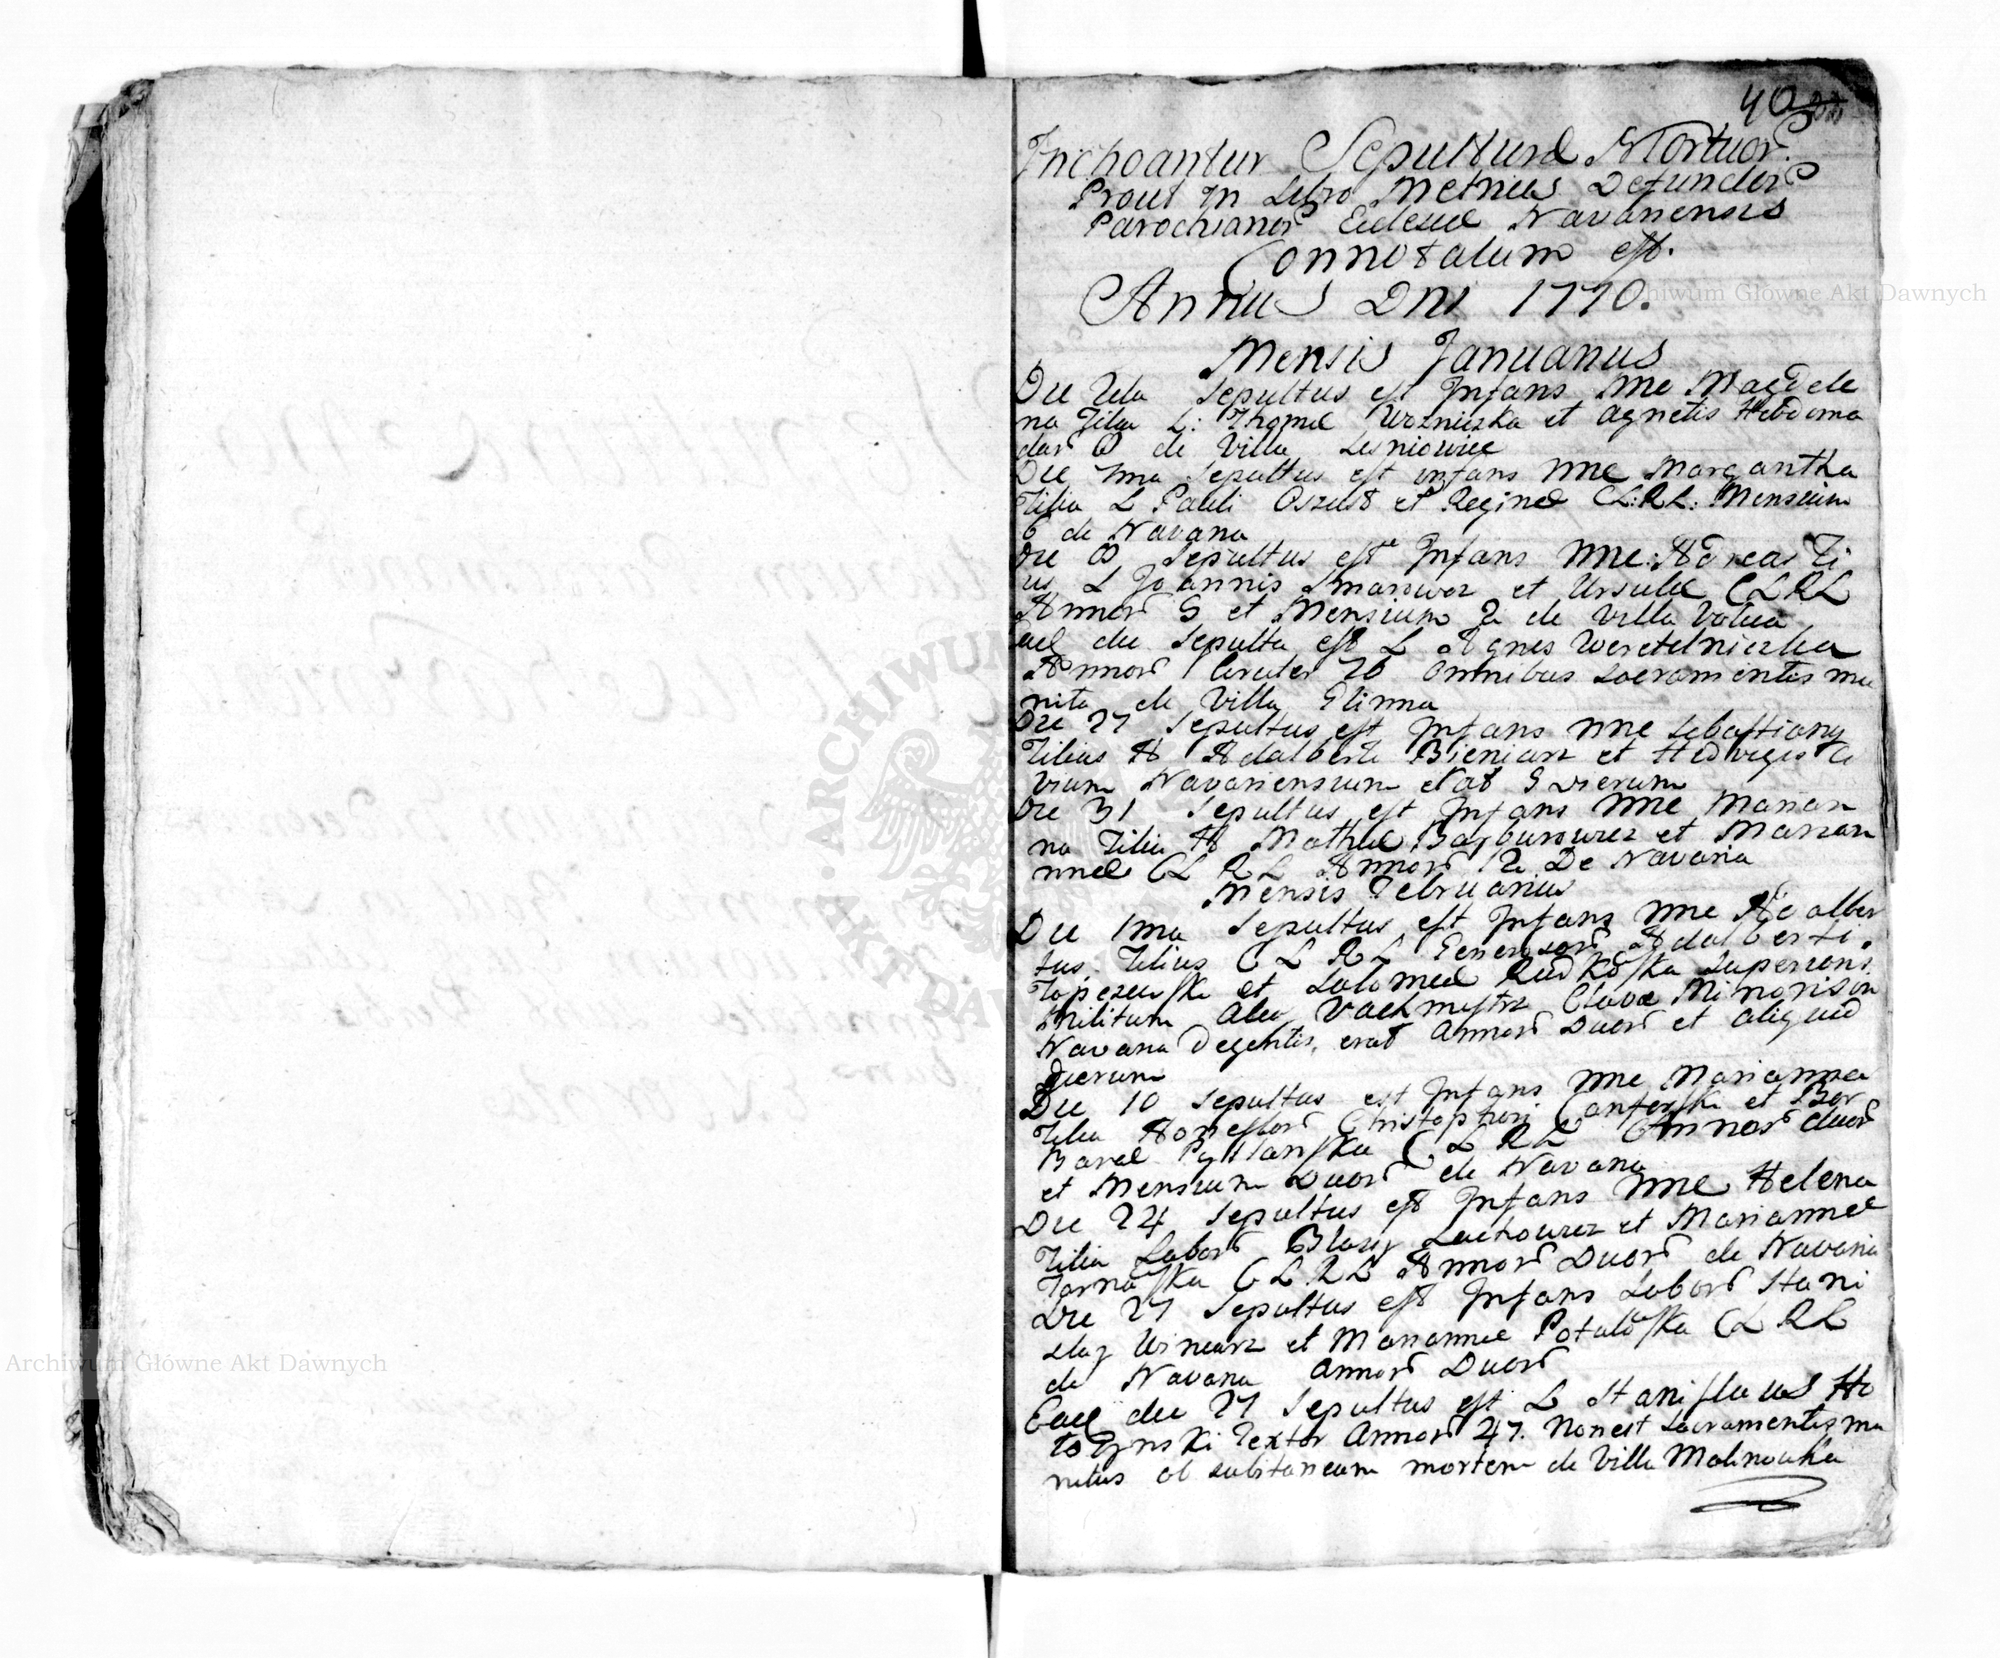 40
Inchoantur Sepulturæ Mortuor.
Prout In Libro Metrices Defunctor
Parochianor Ecclesiæ Navariensis
Connotatum est.
Annus Dni 1770.
Mensis Januarius
Die Sepultus est Infans nne Magdele
na Filia L: Thomæ Wozniczka et Agnetis Hebdoma
dar 8 de Villa Lesniowice
Die 7ma Sepultus est infans nne Margaritha
Filia L Pauli Oszust et Reginæ C:L:R:L: Mensium
6 de Navaria
Die 8 Sepultus est Infans nne: Adreas Fi
us L Joannis Smarowoz et Ursulæ CLRL
Annor 5 et Mensium 2 de Villa Volica
die Sepulta est L Agnes Weretelniczka
Annor Circiter 70 omnibus Sacramentis mu
nita de Villa Glinna
Die 27 Sepultus est Infans nne Sebastiany
Filius H Adalberti Bieniarz et Hedvigis Ci
vium Navariensium erat 5 Dierum
Die 31 Sepultus est Infans nne Marian
na Filia H Mathiæ et Marian
nnæ CL RL Annor 2 De Navaria
Mensis Februarius
Die 1ma Sepultus est Infans nne Adalber
tus Filius C L R L Generosor Adalberti
et Salomeæ Superioris
Militum Alias Vachmystrz Clavæ Minoris in
Navaria Degentis, erat Annor Duor et aliquid
Dierum
Die 10 Sepultus est Infans nne Marianna
Filia Honestor Christophori et Bar
Baræ CL RL Annor duor
et Mensium Duor de Navaria
Die 24 Sepultus est Infans nne Helena
Filia Labor Blasij Lachowicz et Mariannæ
CLRL Annor Duor de Navaria
Die 27 Sepultus est Infans Labor Stani
slaj Winiarz et Mariannæ CL RL
de Navaria Annor Duor
Eaæ die 27 Sepultus est L Stanislaus Ho
Textor Annor 47. Non est Sacramentis mu
nitus ob subitaneam mortem de Villa Malinowka
ARCHIWUM
AKT DA
Archiwum Główne Akt Dawnych
Archiwum Główne Akt Dawnych